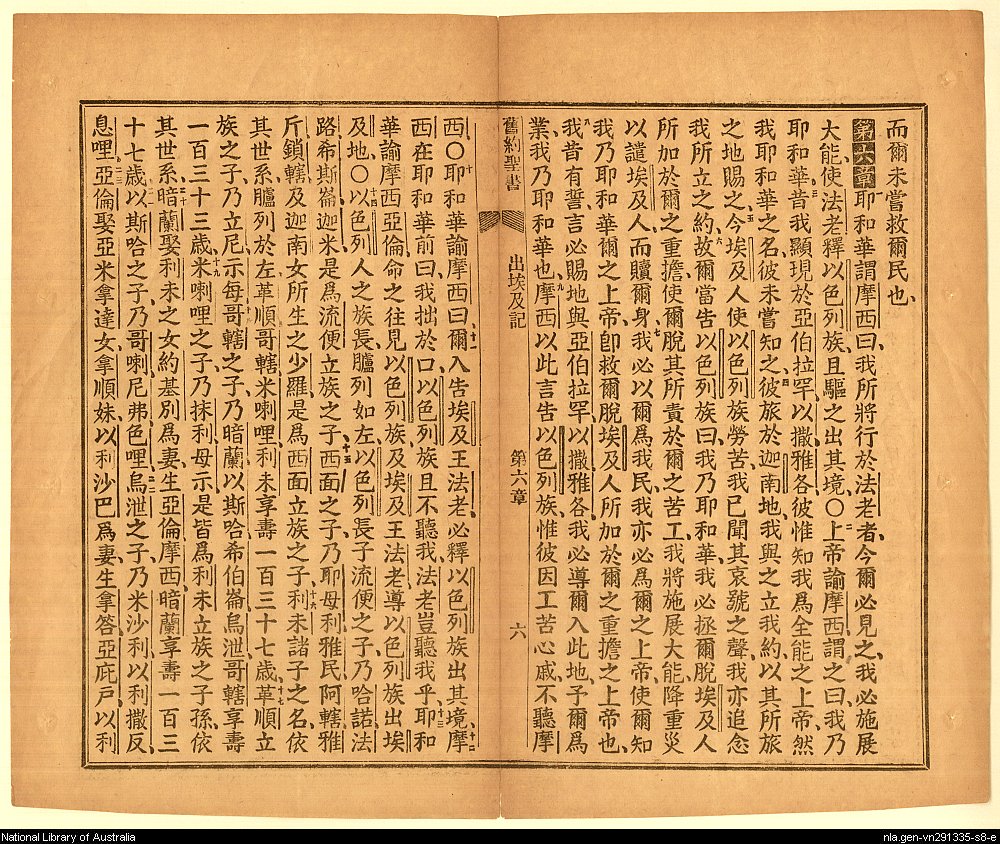 而爾未嘗救爾民也
第六章耶和華謂摩西曰我所將行於法老者今爾必見之我必施展
大能使法老釋以色列族且驅之出其境〇二上帝諭摩西謂之曰我乃
耶和華三昔我顯現於亞伯拉罕以撒雅各彼惟知我爲全能之上帝然
我耶和華之名彼未嘗知之四彼旅於迦南地我與之立我約以其所旅
之地賜之五今埃及人使以色列族勞苦我已聞其哀號之聲我亦追念
我所立之約六故爾當告以色列族曰我乃耶和華我必拯爾脫埃及人
所加於爾之重擔使爾脫其所責於爾之苦工我將施展大能降重災
以譴埃及人而贖爾身七我必以爾爲我民我亦必爲爾之上帝使爾知
我乃耶和華爾之上帝卽救爾脫埃及人所加於爾之重擔之上帝也
八我昔有誓言必賜地與亞伯拉罕以撒雅各我必導爾入此地予爾爲
業我乃耶和華也九摩西以此言告以色列族惟彼因工苦心戚不聽摩
舊約聖書 出埃及記 第六章 六
西〇十耶和華諭摩西曰十一爾入告埃及王法老必釋以色列族出其境十二摩
西在耶和華前曰我拙於口以色列族且不聽我法老豈聽我乎十三耶和
華諭摩西亞倫命之往見以色列族及埃及王法老導以色列族出埃
及地〇十四以色列人之族長臚列如左以色列長子流便之子乃哈諾法
路希斯崙迦米是爲流便立族之子十五西面之子乃耶母利雅民阿轄雅
斤鎖轄及迦南女所生之少羅是爲西面立族之子十六利未諸子之名依
其世系臚列於左革順哥轄米喇哩利未享壽一百三十七歲十七革順立
族之子乃立尼示每十八哥轄之子乃暗蘭以斯哈希伯崙烏泄哥轄享壽
一百三十三歲十九米喇哩之子乃抹利母示是皆爲利未立族之子孫依
其世系二十暗蘭娶利未之女約基別爲妻生亞倫摩西暗蘭享壽一百三
十七歲二一以斯哈之子乃哥喇尼弗色哩二二烏泄之子乃米沙利以利撒反
息哩二三亞倫娶亞米拿達女拿順妹以利沙巴爲妻生拿答亞庇戶以利
National Library of Australia
nla.gen-vn291335-s8-e